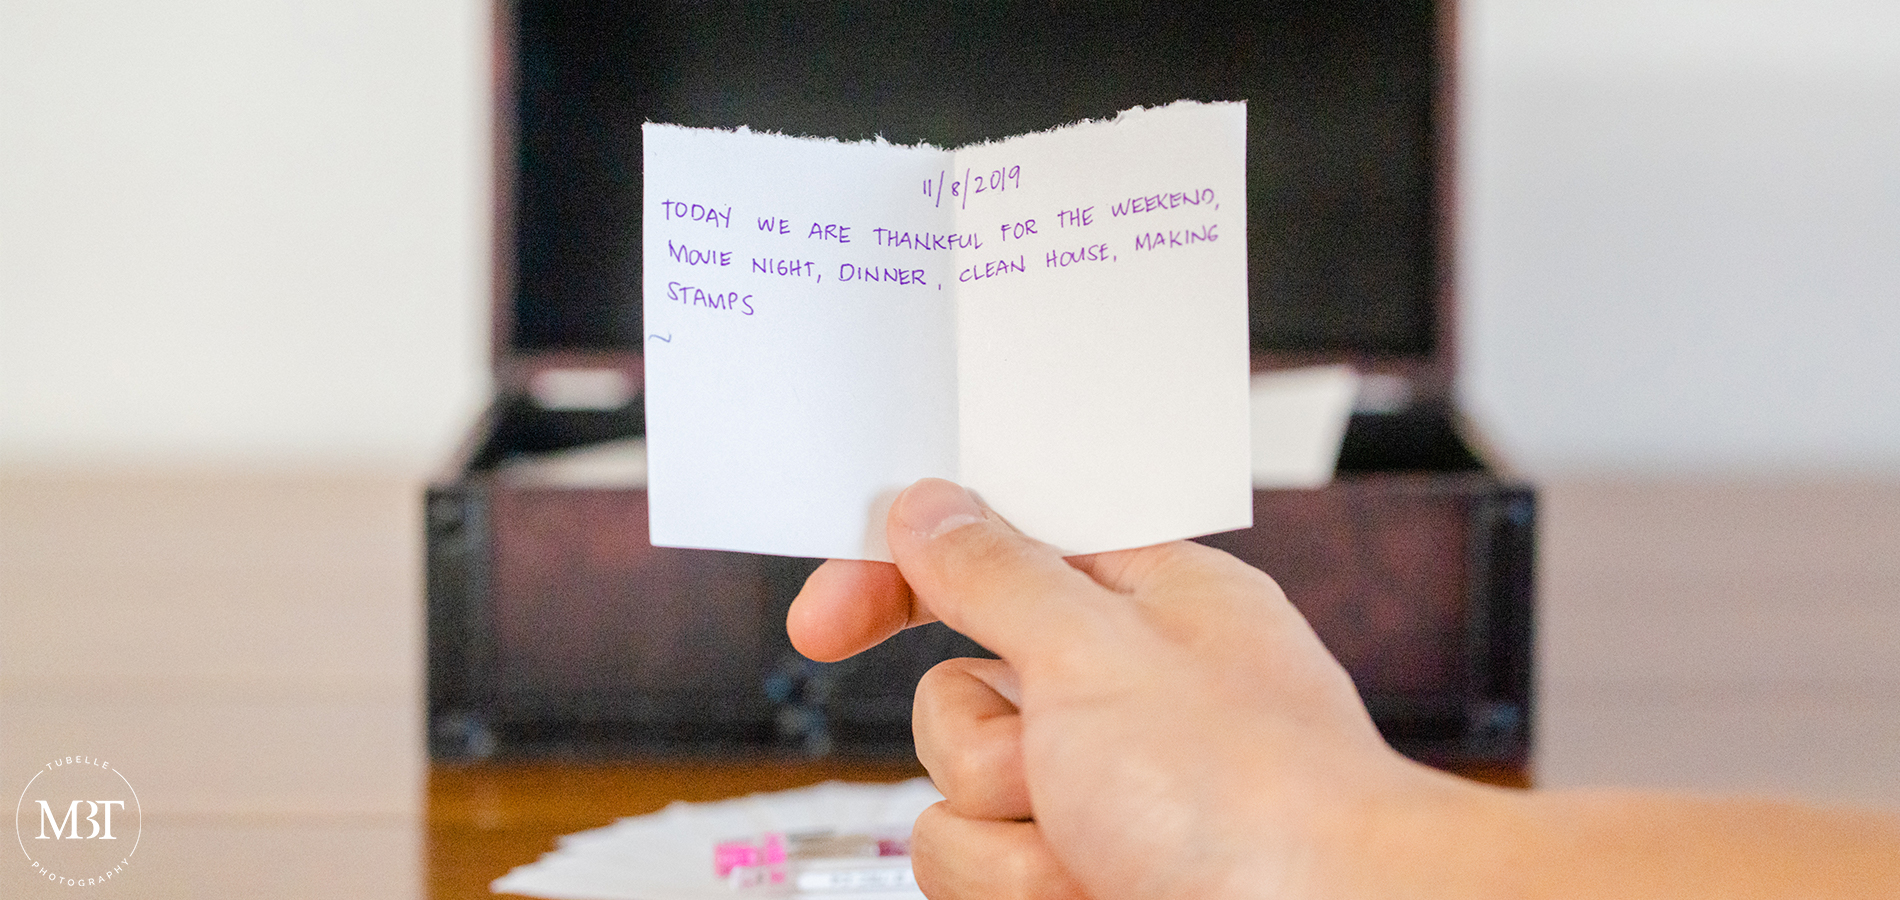 11/8/2019
TODAY WE ARE THANKFUL FOR THE WEEKEND,
MOVIE NIGHT, DINNER, CLEAN HOUSE, MAKING
STAMPS
~
TUBELLE
MBT
PHOTOGRAPHY